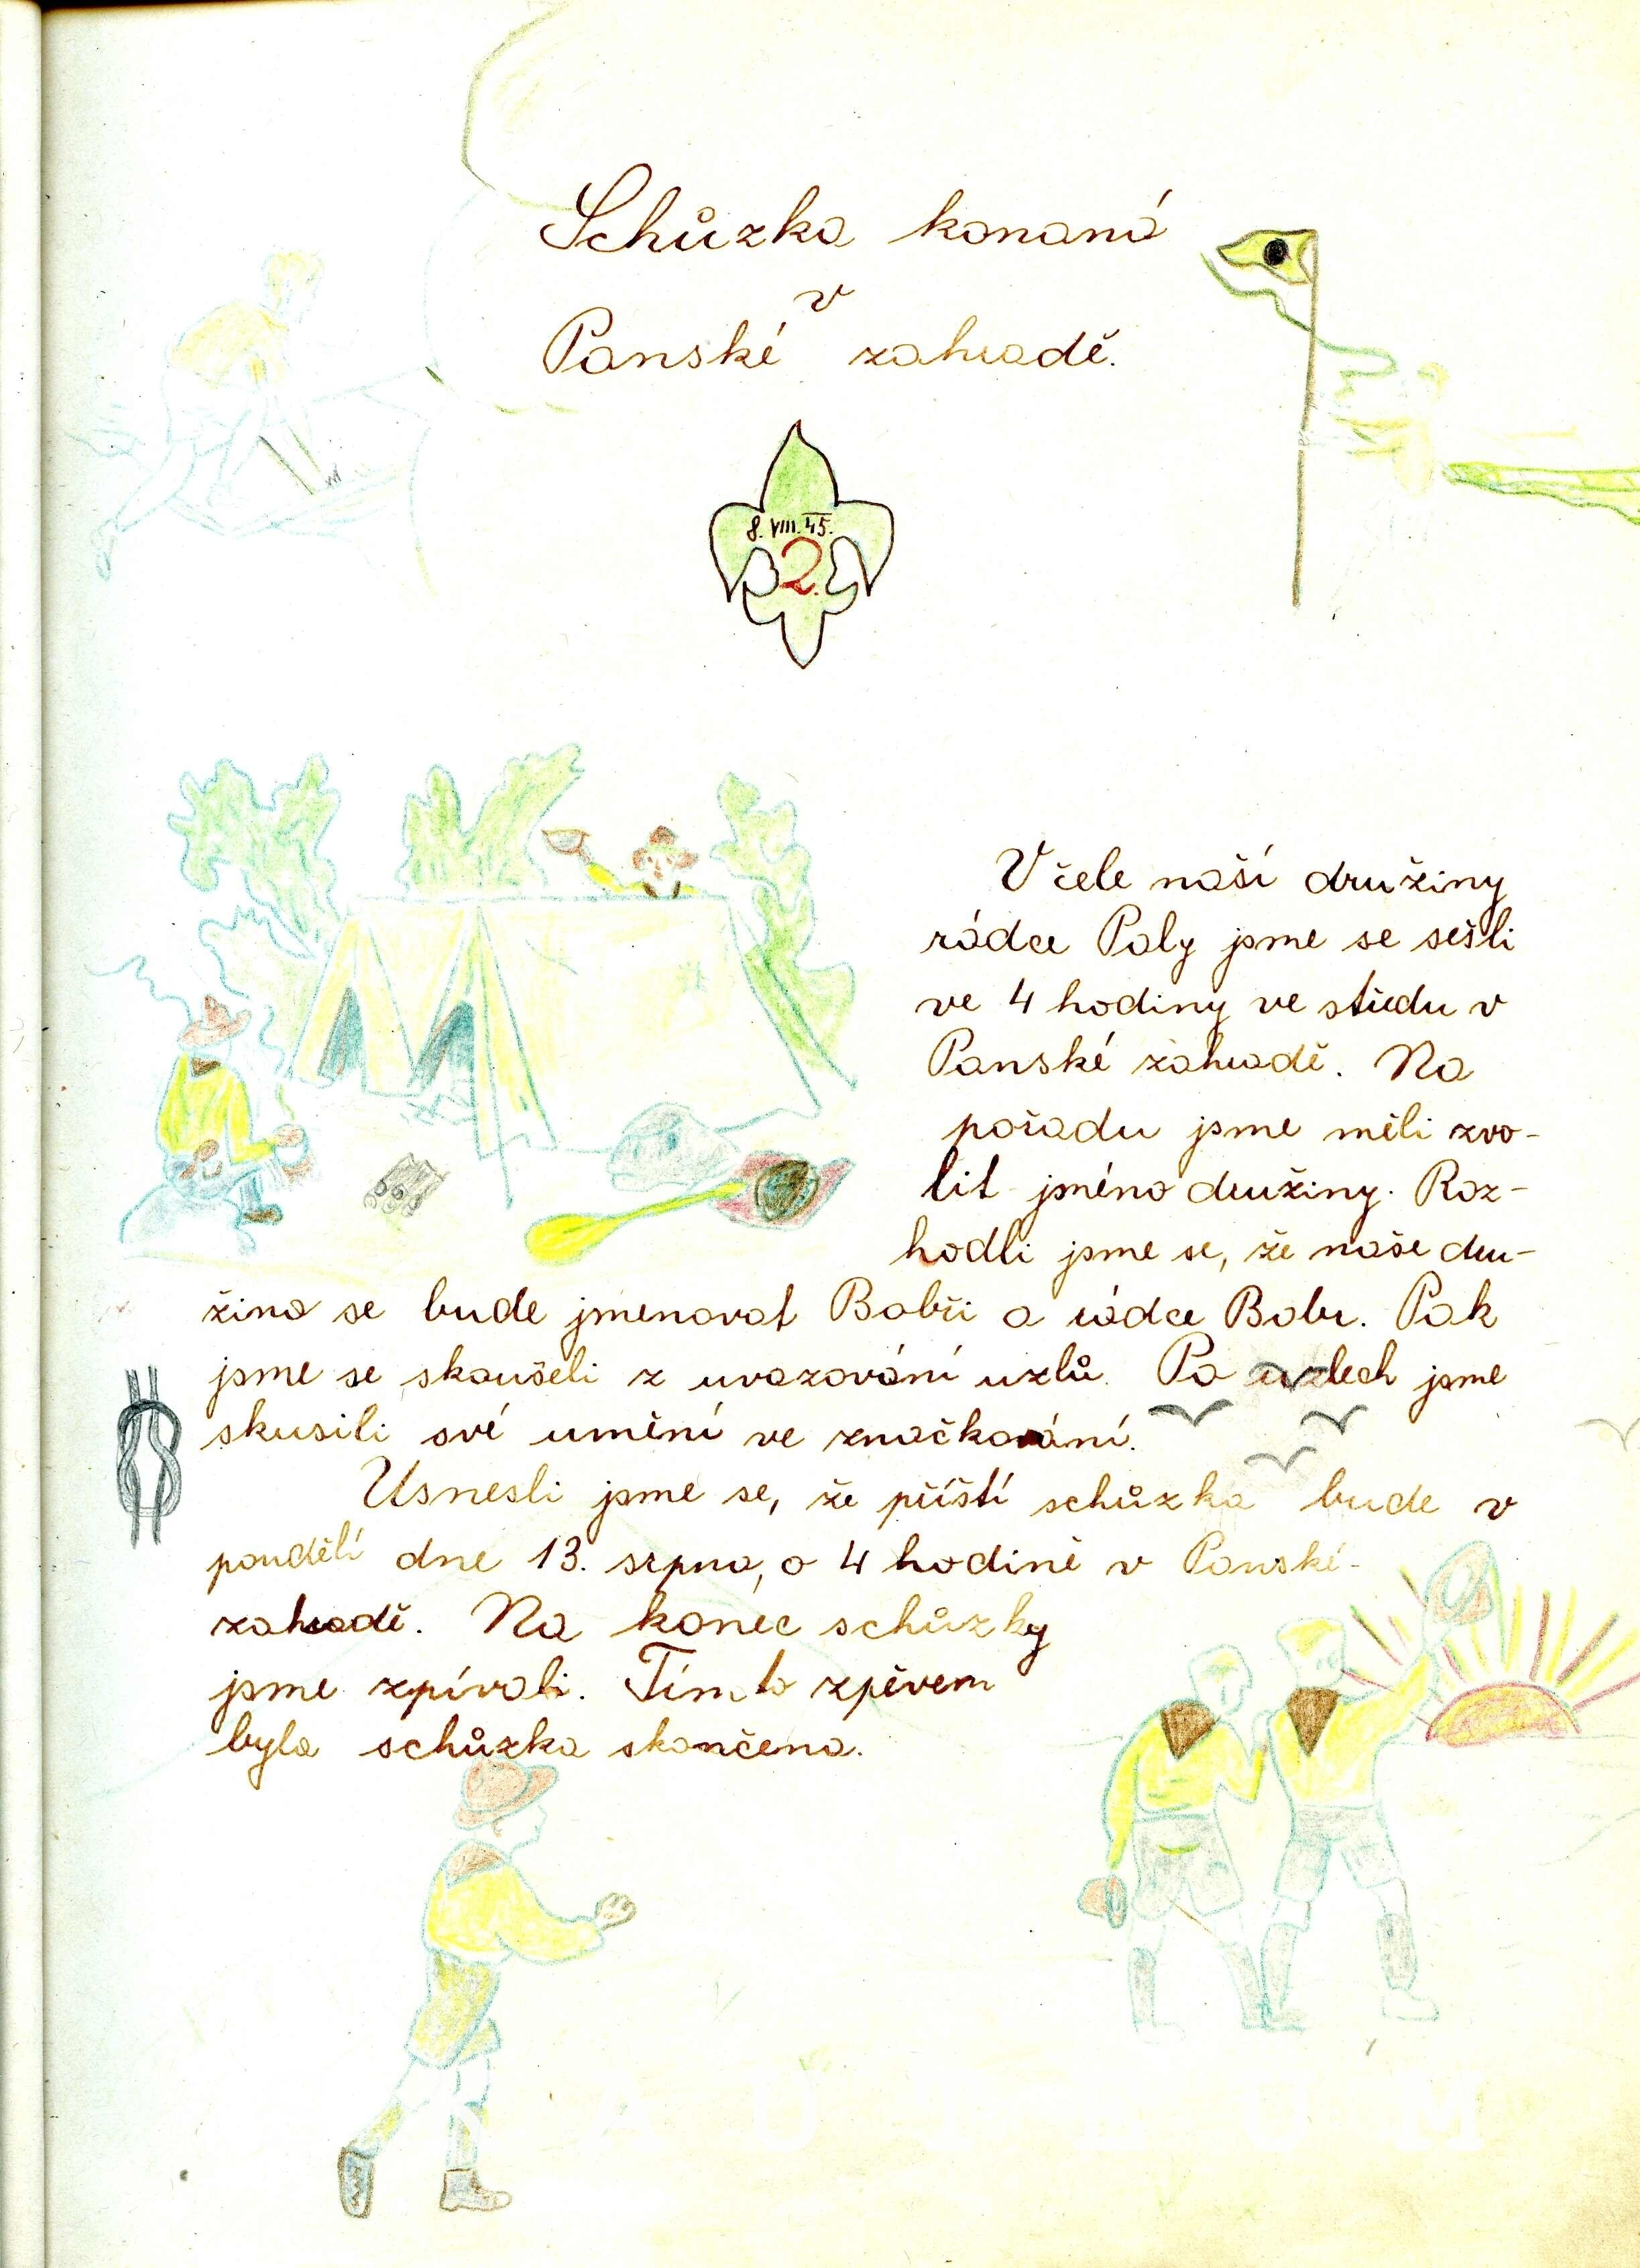 Schůzka konaná
v
Panské zahradě.
8. VIII. 45.
2.
V čele naší družiny
rádce Paly jsme se sešli
ve 4 hodiny ve středu v
Panské zahradě. Na
pořadu jsme měli zvo-
lit jméno družiny. Roz-
hodli jsme se, že naše dru-
žina se bude jmenovat Bobři a rádce Bobr. Pak
jsme se skoušeli z uvazování uzlů. Po uzlech jsme
skusili své umění ve značkování.
Usnesli jsme se, že příští schůzka bude v
pondělí dne 13. srpna, o 4 hodině v Panské-
zahradě. Na konec schůzky
jsme zpívali. Tímto zpěvem
byla schůzka skončena.